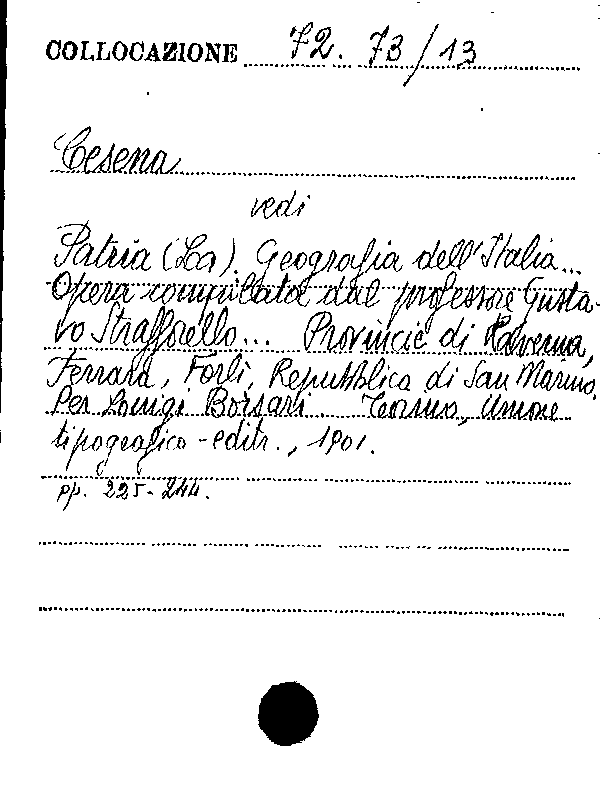 COLLOCAZIONE 72. 73/13
Cesena
vedi
Patria (La). Geografia dell'Italia...
Opera compilata dal professore Gusta-
vo Strafforello... Provincie di Ravenna,
Ferrara, Forlì, Repubblica di San Marino.
Per Luigi Borsari Torino, Unione
tipografico-editr., 1901.
pp. 225-244.